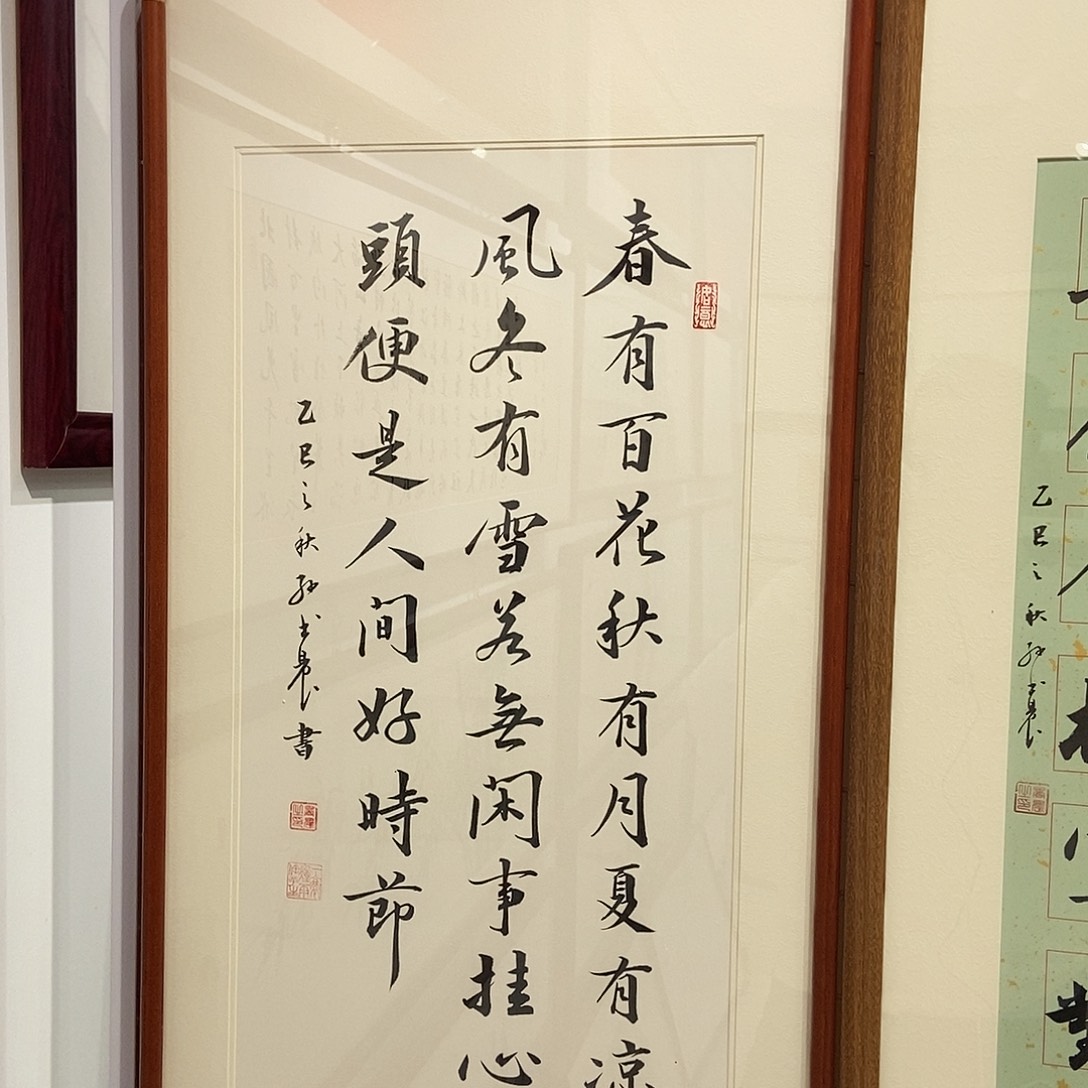 春有百花秋有月夏有涼
風冬有雪若無閑事挂心
頭便是人間好時節
乙巳之秋孙士晨書
乙巳之秋孙士晨